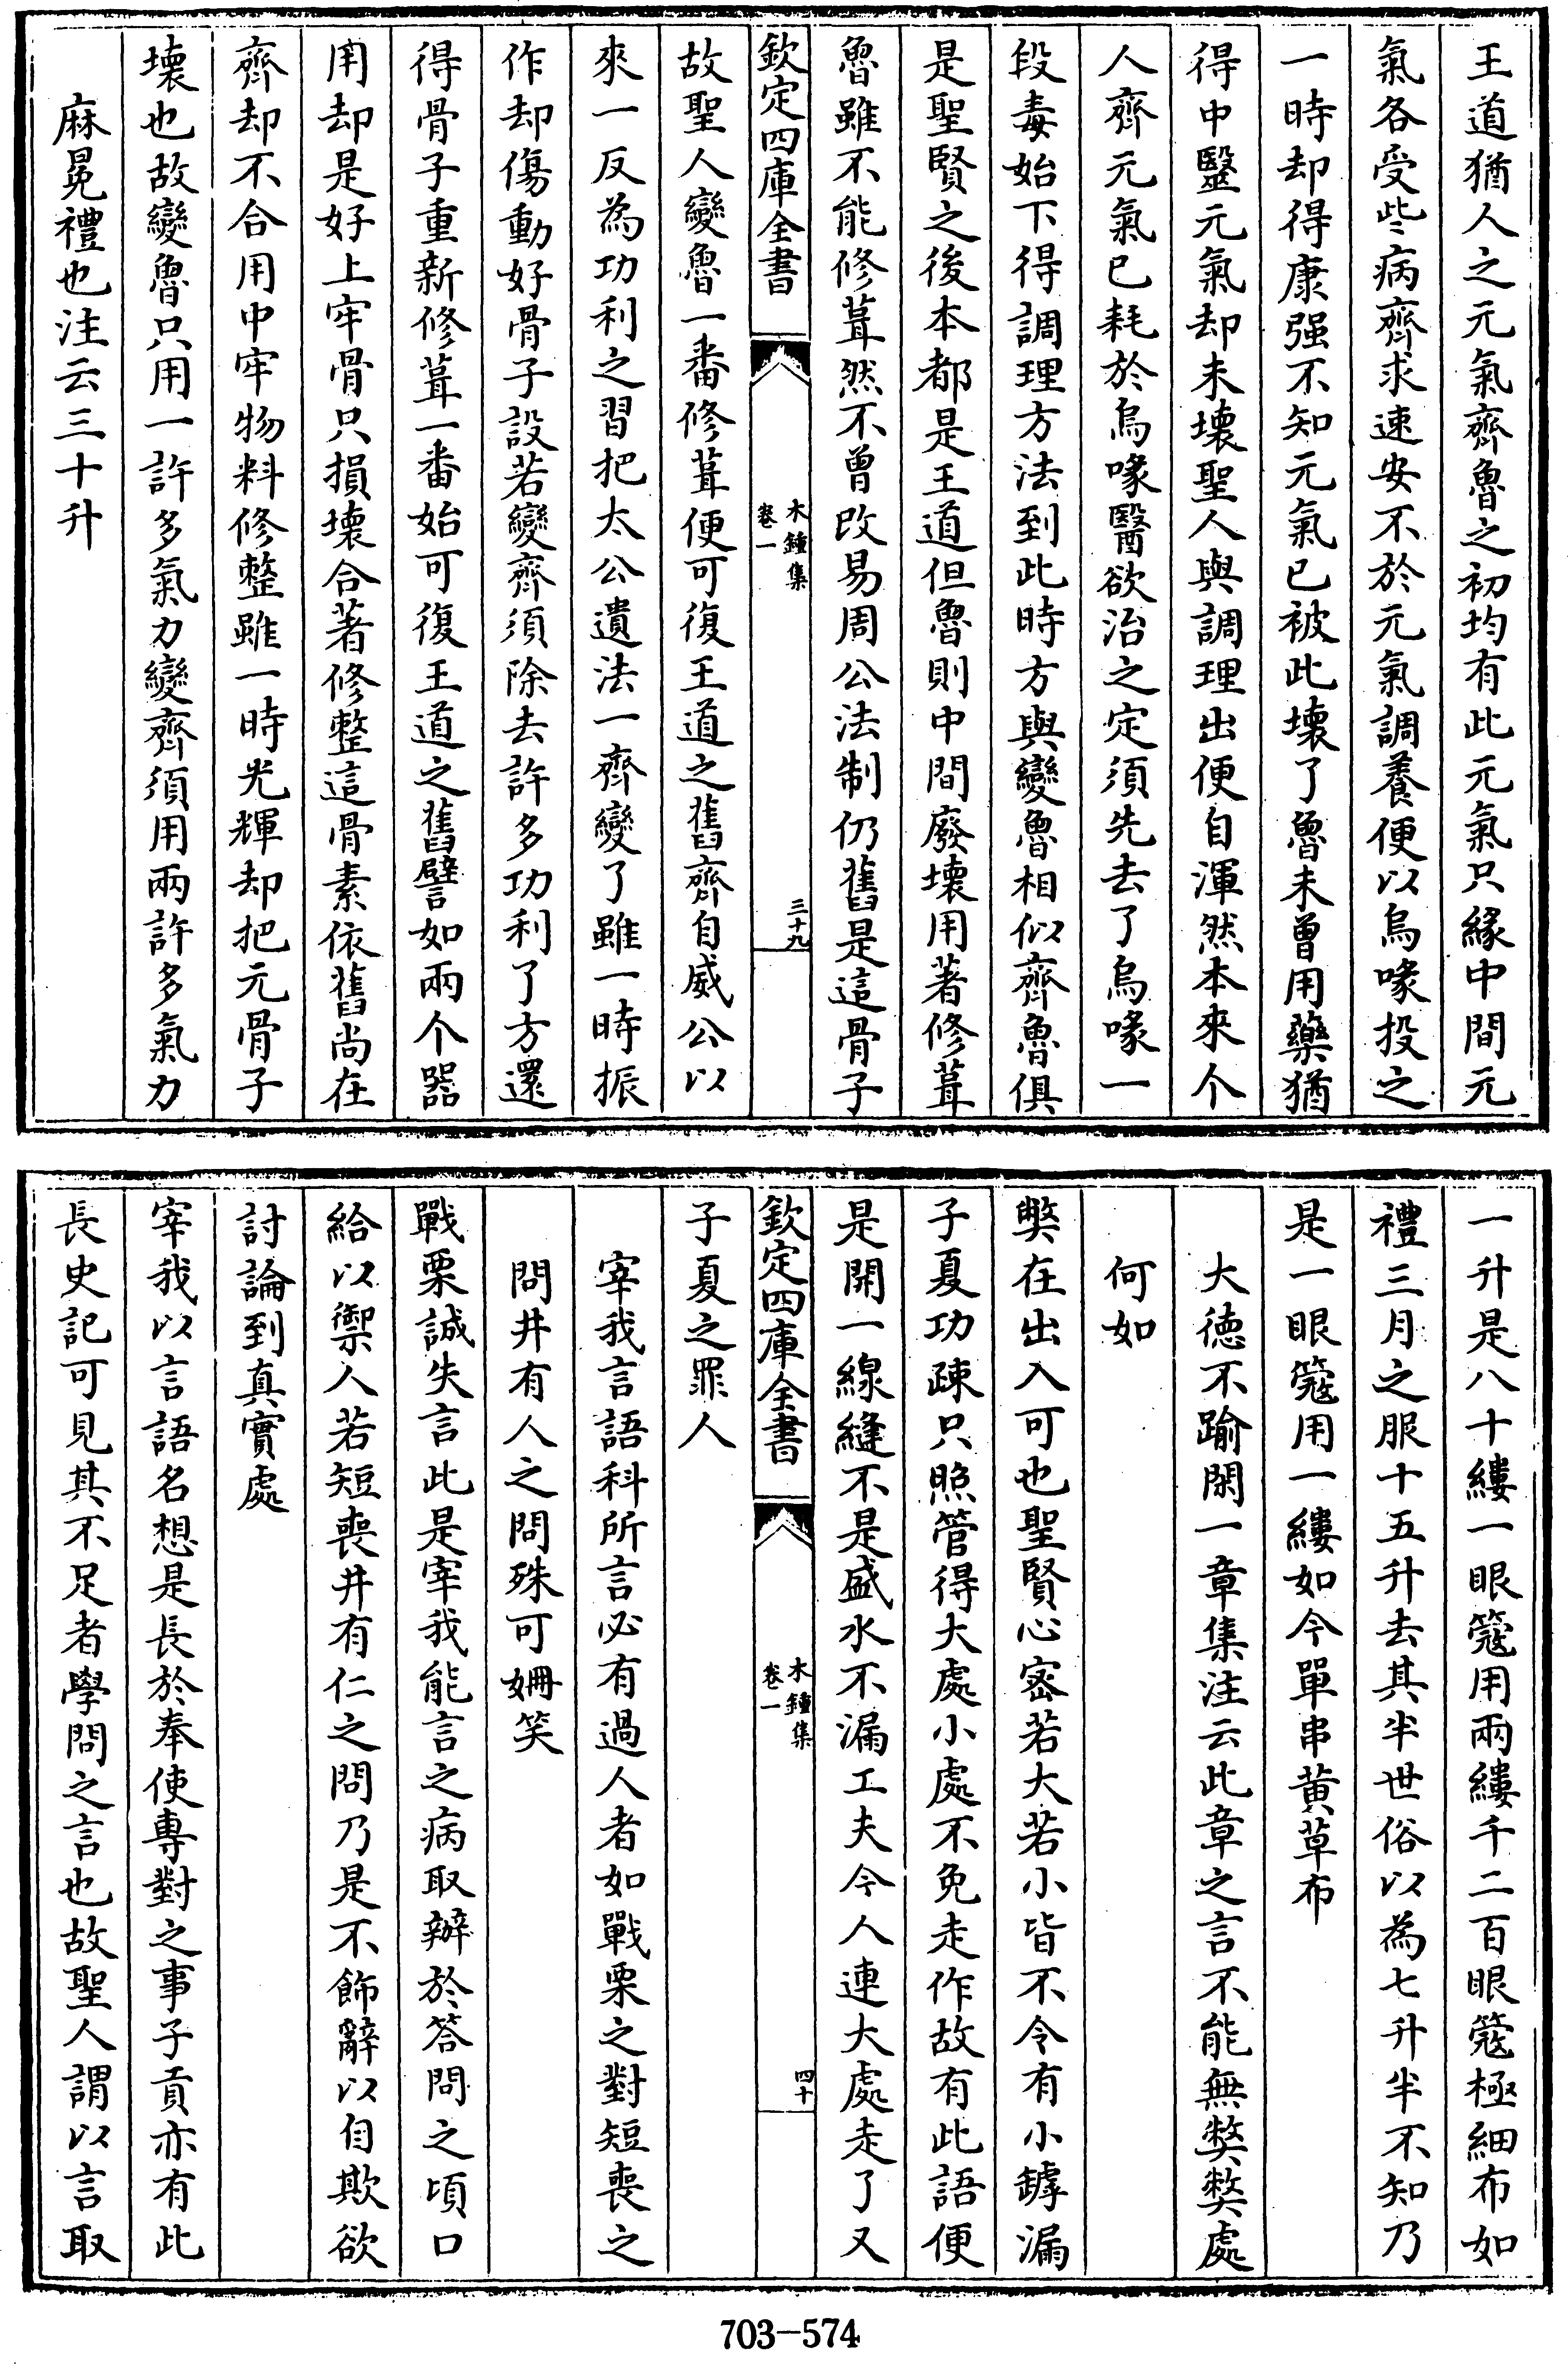 王道猶人之元氣齊魯之初均有此元氣只緣中間元
氣各受些病齊求速安不於元氣調養便以烏喙投之
一時却得康强不知元氣已被此壞了魯未曾用藥猶
得中醫元氣却未壞聖人與調理出便自渾然本來个
人齊元氣已耗於烏喙醫欲治之定須先去了烏喙一
段毒始下得調理方法到此時方與變魯相似齊魯俱
是聖賢之後本都是王道但魯則中間廢壞用著修葺
魯雖不能修葺然不曾改易周公法制仍舊是這骨子
欽定四庫全書
木鍾集
卷一
三十九
故聖人變魯一番修葺便可復王道之舊齊自威公以
來一反為功利之習把太公遺法一齊變了雖一時振
作却傷動好骨子設若變齊須除去許多功利了方還
得骨子重新修葺一番始可復王道之舊譬如兩个器
用却是好上牢骨只損壞合著修整這骨素依舊尚在
齊却不合用中牢物料修整雖一時光輝却把元骨子
壞也故變魯只用一許多氣力變齊須用兩許多氣力
麻冕禮也注云三十升
一升是八十縷一眼簆用兩縷千二百眼簆極細布如
禮三月之服十五升去其半世俗以為七升半不知乃
是一眼簆用一縷如今單串黄草布
大德不踰閑一章集注云此章之言不能無弊弊處
何如
弊在出入可也聖賢心宻若大若小皆不令有小罅漏
子夏功疎只照管得大處小處不免走作故有此語便
是開一線縫不是盛水不漏工夫今人連大處走了又
欽定四庫全書
木鍾集
卷一
四十
子夏之罪人
宰我言語科所言必有過人者如戰栗之對短喪之
問井有人之問殊可姍笑
戰栗誠失言此是宰我能言之病取辦於答問之頃口
給以禦人若短喪井有仁之問乃是不飾辭以自欺欲
討論到真實處
宰我以言語名想是長於奉使專對之事子貢亦有此
長史記可見其不足者學問之言也故聖人謂以言取
703-574